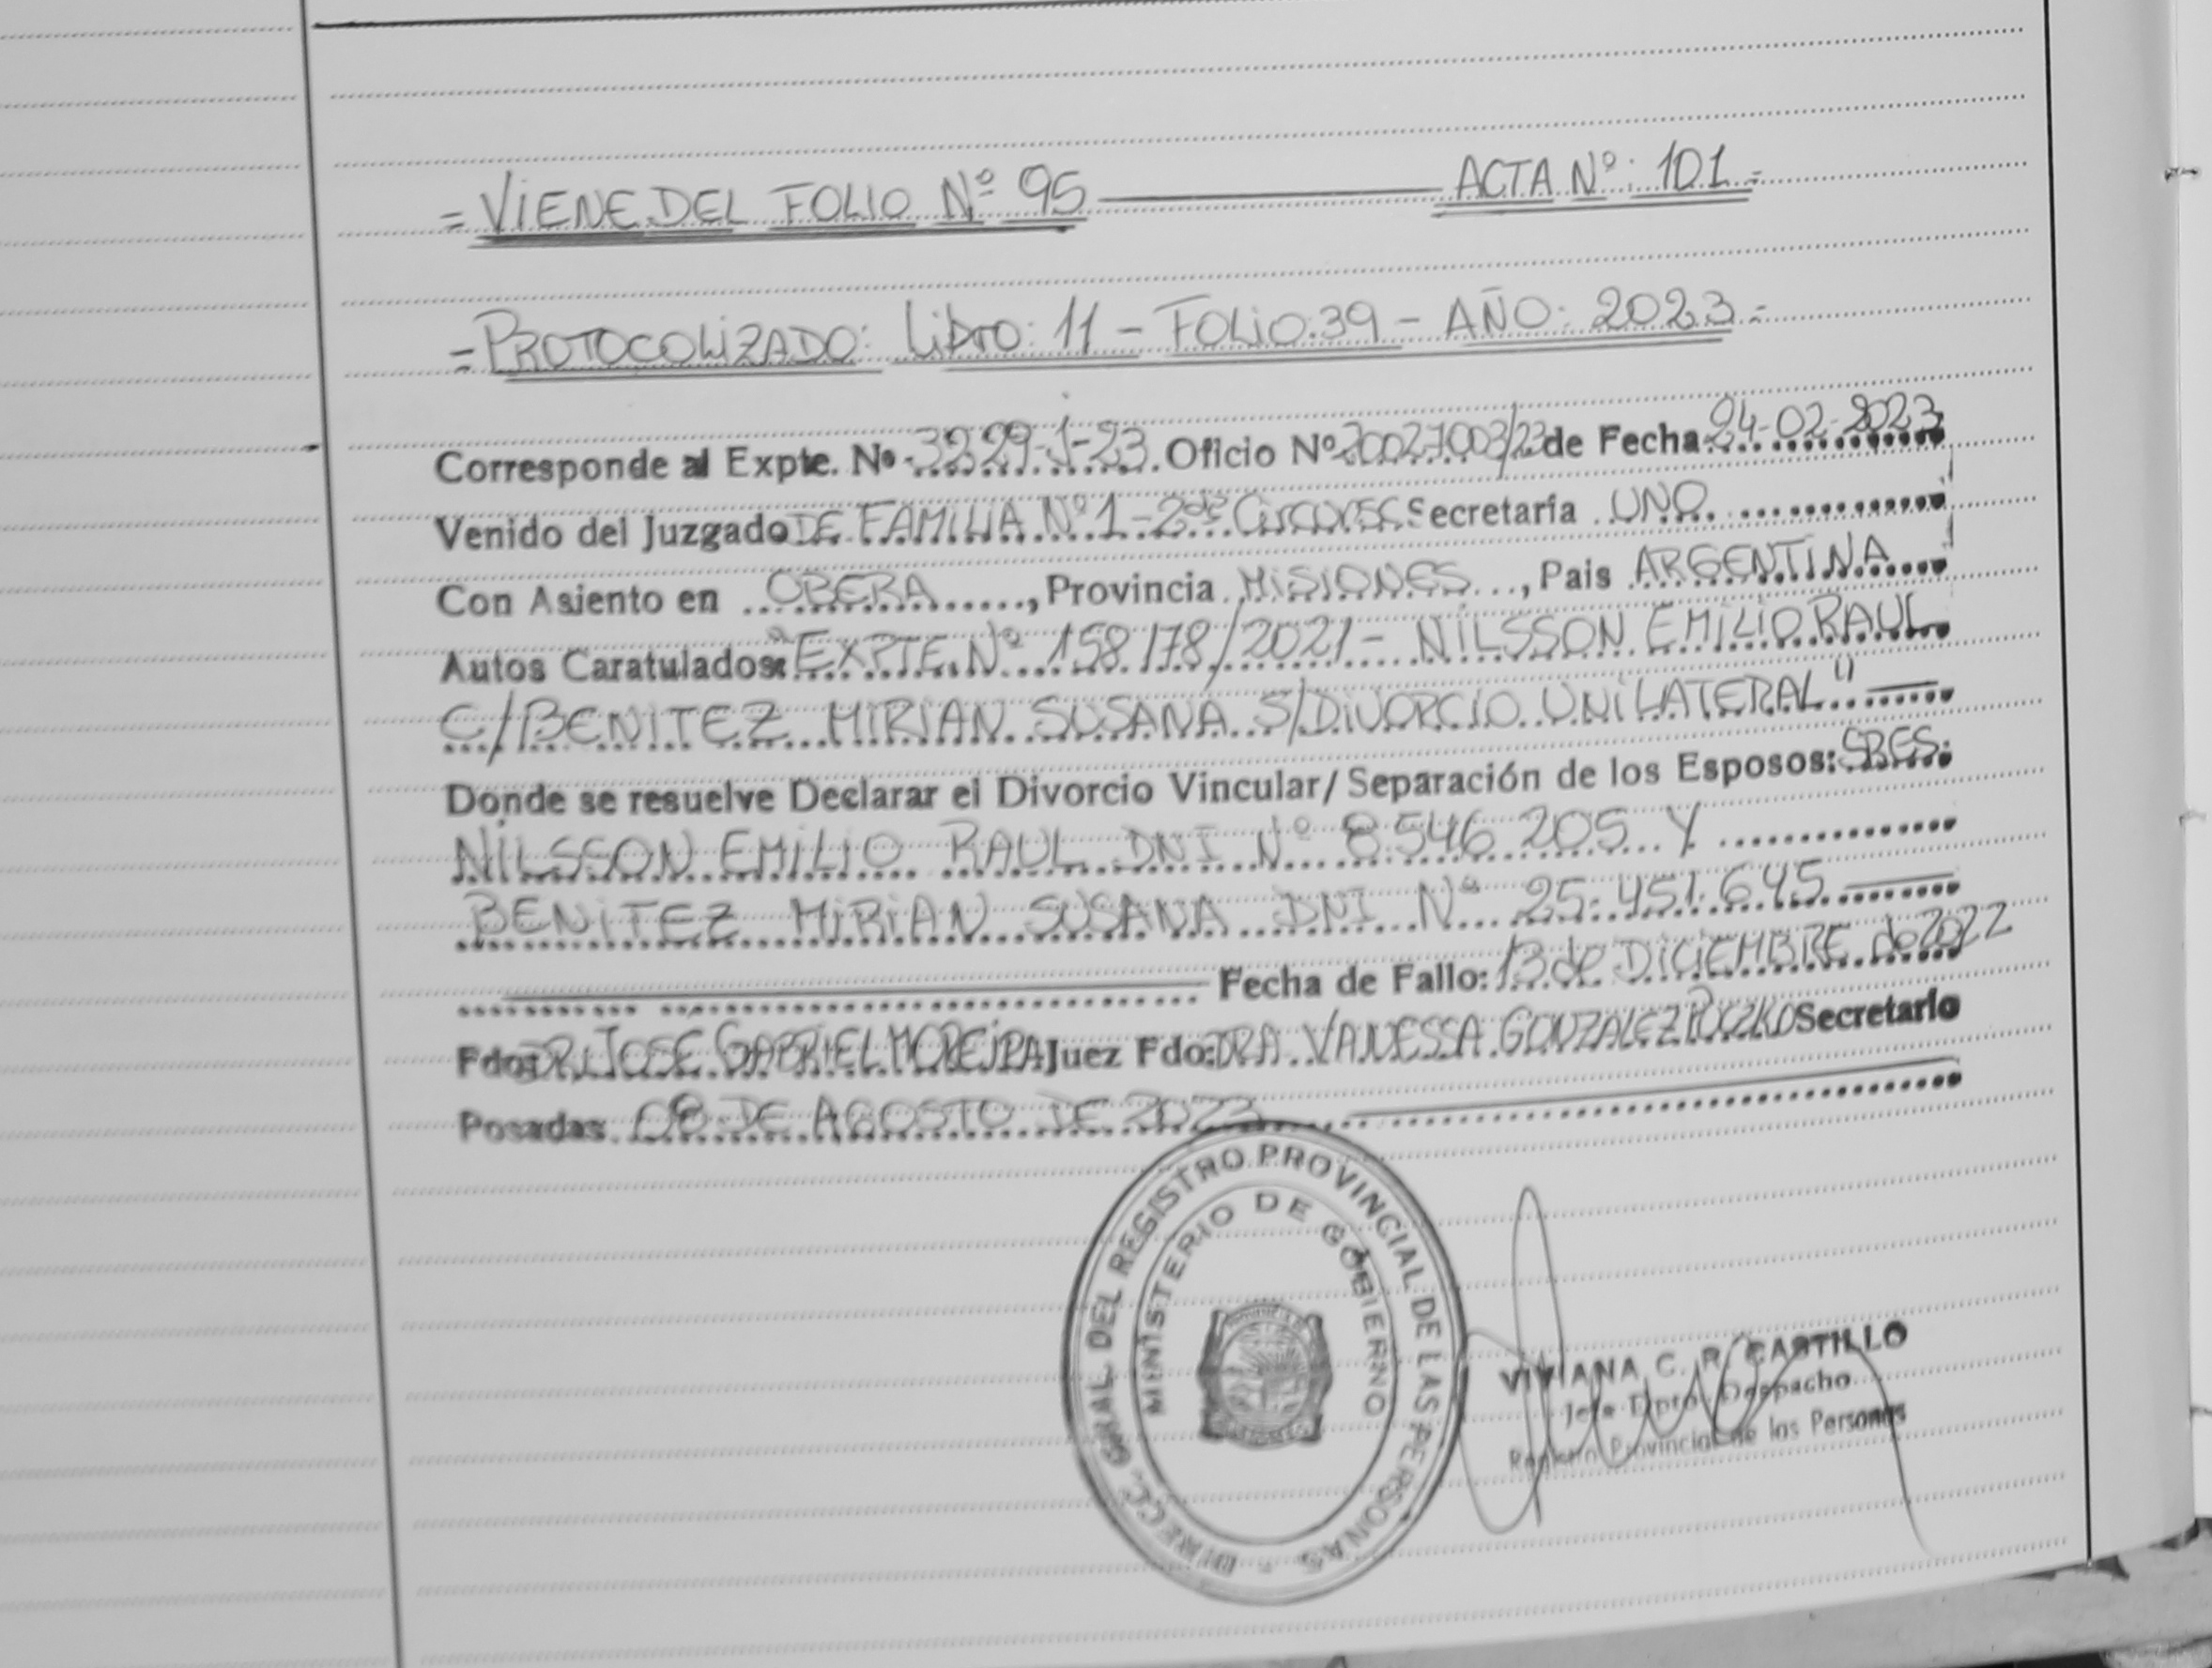 = VIENE DEL FOLIO Nº 95 ACTA Nº: 101 =
= PROTOCOLIZADO: Libro: 11 - FOLIO: 39 - AÑO: 2023 =
Corresponde al Expte. Nº 3229-J-23. Oficio Nº 20027003/23 de Fecha 24-02-2023
Venido del Juzgado DE FAMILIA Nº 1 - 2da Secretaría UNO
Con Asiento en OBERA, Provincia MISIONES, Pais ARGENTINA
Autos Caratulados: "EXPTE. Nº 158178/2021 - NILSSON EMILIO RAUL
C/BENITEZ MIRIAN SUSANA S/DIVORCIO UNILATERAL"
Donde se resuelve Declarar el Divorcio Vincular/Separación de los Esposos: SRES.
NILSSON EMILIO RAUL DNI Nº 8.546.205 Y
BENITEZ MIRIAN SUSANA DNI Nº 25.451.645
Fecha de Fallo: 13 de DICIEMBRE de 2022
Fdo: DR. JOSE GABRIEL MOREIRA Juez Fdo: DRA. VANESSA GONZALEZ Secretario
Posadas 08 DE AGOSTO DE 2023
DIRECC. GRAL DEL REGISTRO PROVINCIAL DE LAS PERSONAS
MINISTERIO DE GOBIERNO
VIVIANA C. R. CASTILLO
Jefe Dpto. Despacho
Registro Provincial de las Personas